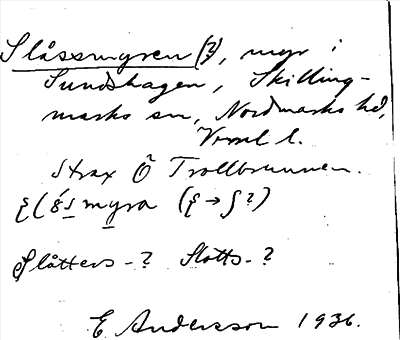 Slåssmyren (?), myr i
Sundshagen, Skilling-
marks sn, Nordmarks hd,
Vrml l.
Strax Ö Trollbrunnen.
myra
Slåtters-? Slotts-?
E Andersson 1936.